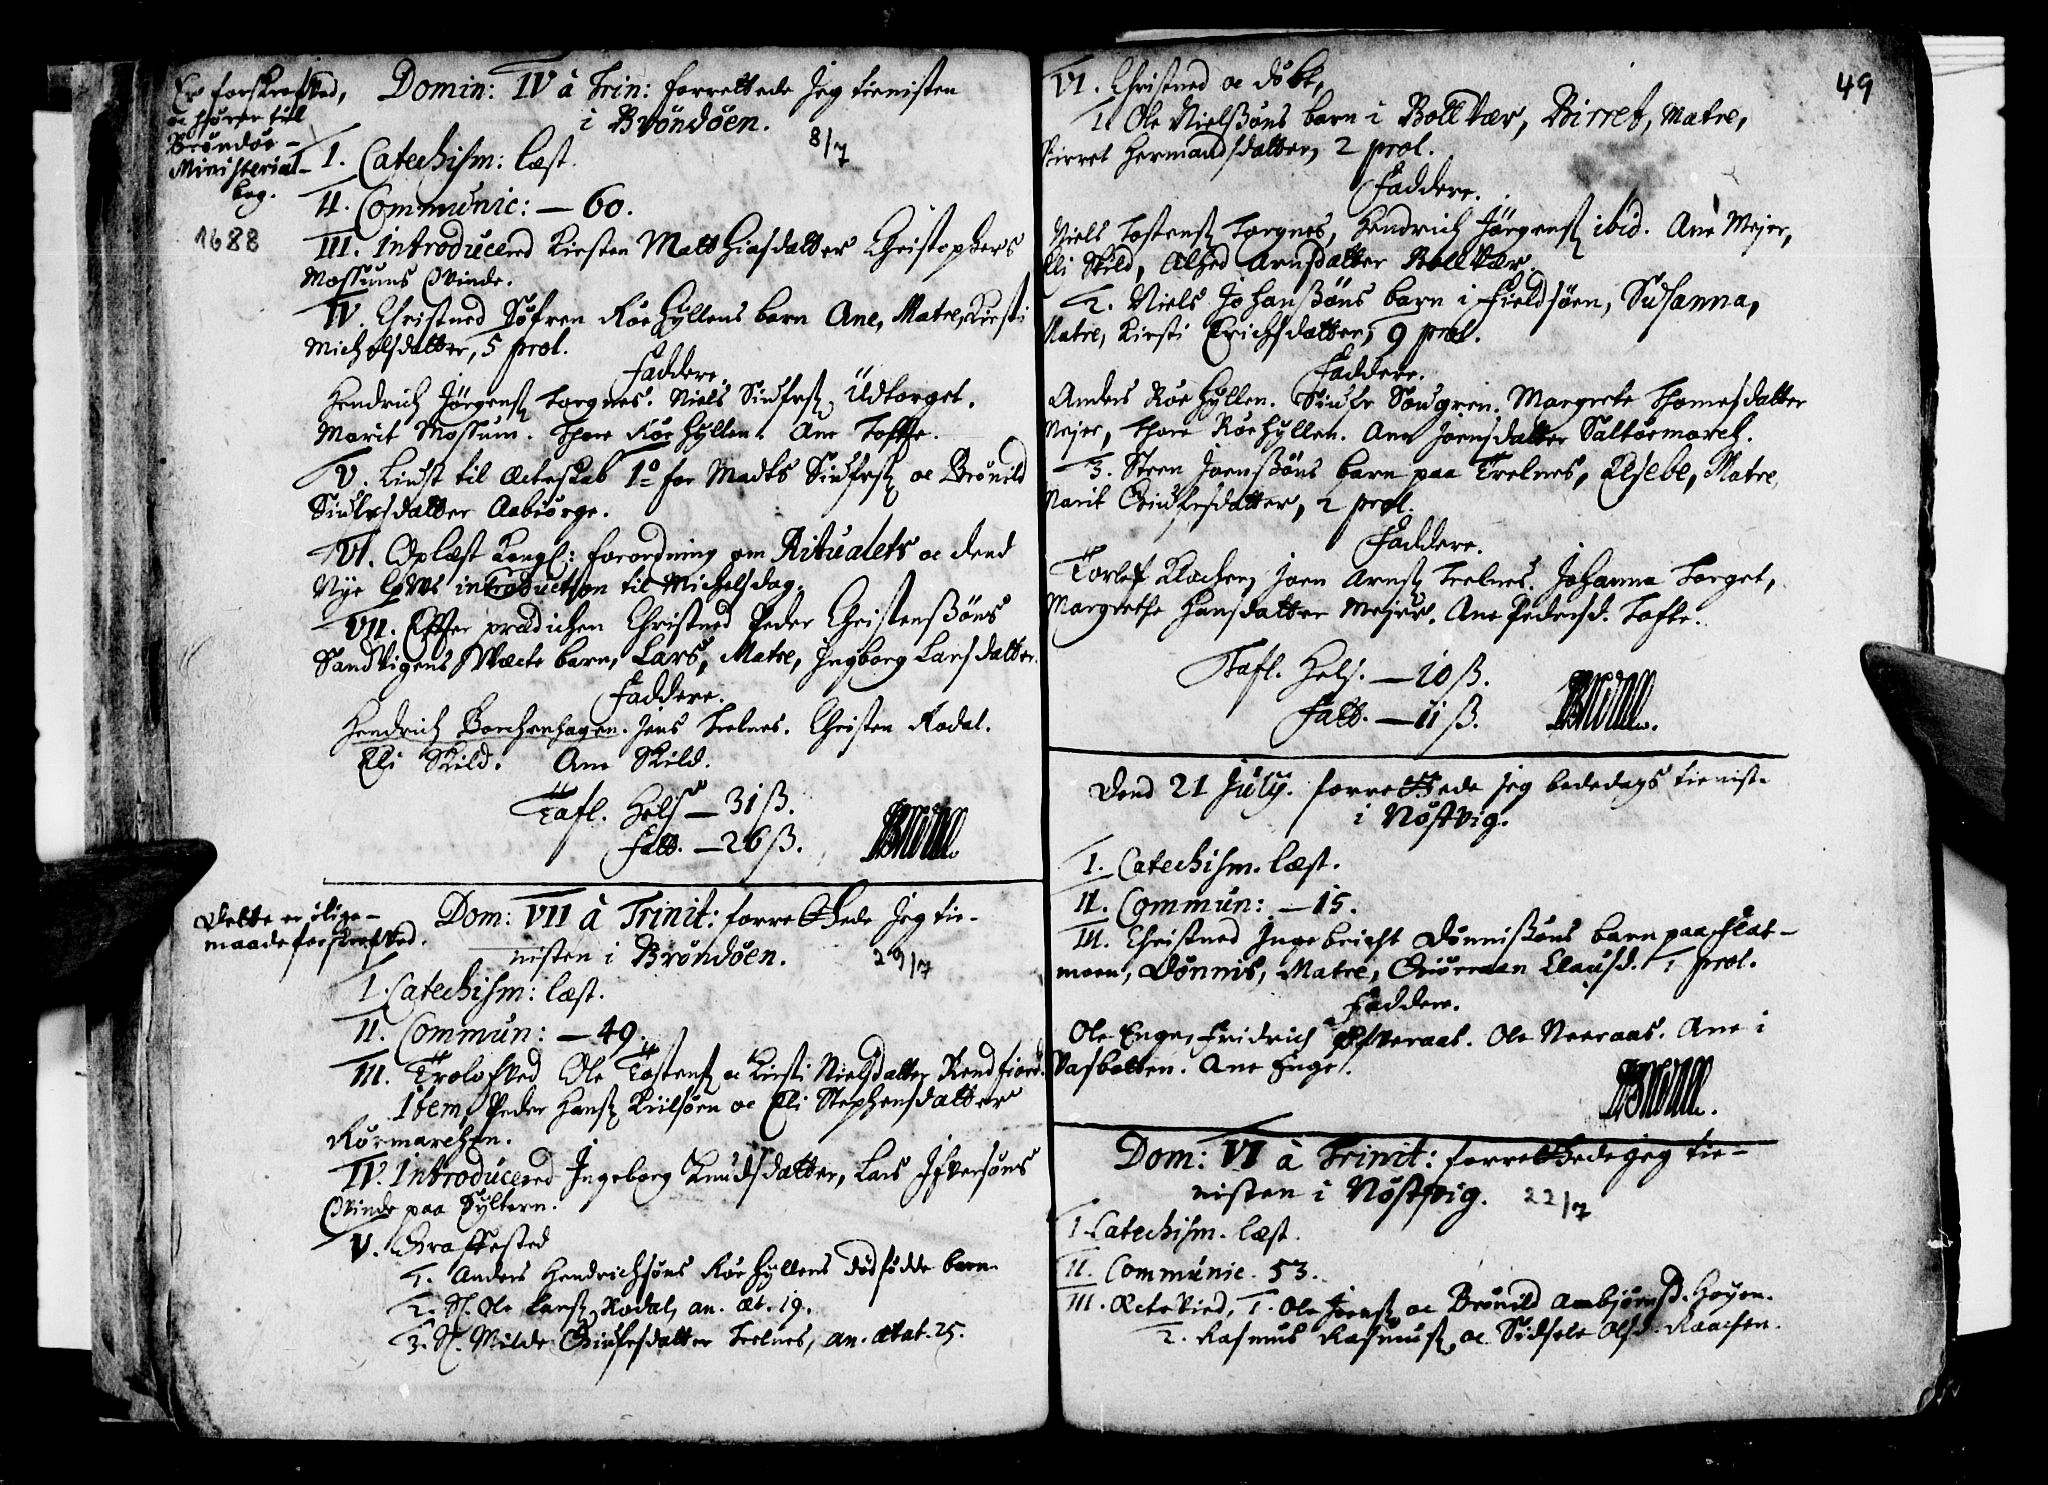 Er forskrefved,
oc hører till
Brøndøe-
Ministerial-
bog.
1688
Domin: IV à Trin: forrettede Jeg tienisten
i Brøndøen.
8/7
I. Catechism: læst.
II. Communic: — 60.
III. Introducered Kirsten Matthiasdatter Christophers
Mossums Qvinde.
IV. Christned Søfren Røehyllens barn Ane, Matre, Kirsti
Michelsdatter, 5 præl.
Faddere.
Hendrich Jørgens. Torgnes. Niels Siufrs. Udtorget.
Marit Mossum. Thore Røehyllen. Ane Tofte.
V. Liust til Ecteskab 1º for Madts Siufrs. oc Brønild
Siulesdatter Aabiørge.
VI. Oplæst Kongl: forordning om Ritualets oc dend
Nye introduction til Michelsdag.
VII. Effter prædichen Christned Peder Christensßøns
Sandvigens Ægte barn, Lars, Matre, Ingborg Larsdatter.
Faddere.
Hendrich Borchenhagen. Jens Trelnes. Christen Rodal.
Eli Skild. Ane Skild.
Tafl. Hels — 31 ß.
Fatt. — 26 ß.
Dette er i lige-
maade forskrefved.
Dom: VII à Trinit: forrettede Jeg tie-
nisten i Brøndøen.
29/7
I. Catechism: læst.
II. Commun: — 49.
III. Trolofved Ole Tostens. oc Kirsti Nielsdatter Rendfiord.
Item, Peder Hans. Kiilsøen oc Eli Stephensdatter
Rørmarchen.
IV. Introducered Ingeborg Knudsdatter, Lars Ifversøns
Qvinde paa Syltern.
V. Graffested
1. Anders Hendrichsøns Røehyllens dødfødde barn.
2. Sl. Ole Lars. Rodal, an. æt. 19.
3. Sl. Milde Giulesdatter Trelnes, an. ætat. 25.
49
VI. Christned oc døbt,
1. Ole Nielsßøns barn i Bollvær, Birret, Matre,
Birret Hermandsdatter, 2 præl.
Faddere.
Niels Tostens. Torgnes, Hendrich Jørgens. ibid. Ane Mejer,
Eli Skild, Alhed Arnsdatter Bollvær.
2. Niels Johansßøns barn i Fieldsøen, Susanna,
Matre, Kirsti Erichsdatter, 9 præl.
Faddere.
Anders Røehyllen. Siule Søugren. Margrete Thomesdatter
Mejer, Thore Røehyllen. Ane Joensdatter Saltøemarch.
3. Steen Joensßøns barn paa Trelnes, Elsebe, Matre
Marit Giulesdatter, 2 præl.
Faddere.
Torlef Klocker, Joen Arns. Trelnes. Johanna Torget,
Margrethe Hansdatter Mejers. Ane Pedersd. Tofte.
Tafl. Hels. — 10 ß.
Fatt. — 11 ß.
Dend 21 July. forrettede jeg bededags tienist
i Nøstvig.
I. Catechism. læst.
II. Commun: — 15.
III. Christned Ingebricht Dønnisßøns barn paa Flat-
moen, Dønnis, Matre, Giørraan Clausd. 1 præl.
Faddere.
Ole Enge, Fridrich Østveraas. Ole Neeraas. Ane i
Vasbotten. Ane Enge.
Dom: VI à Trinit: forrettede jeg tie-
nisten i Nøstvig. 22/7
I. Catechism. læst.
II. Communic. 53.
III. Ectevied, 1. Ole Joens. oc Brønild Ambjørnsd. Høyen.
2. Rasmus Rasmus. oc Sidsele Olsd. Raachen.